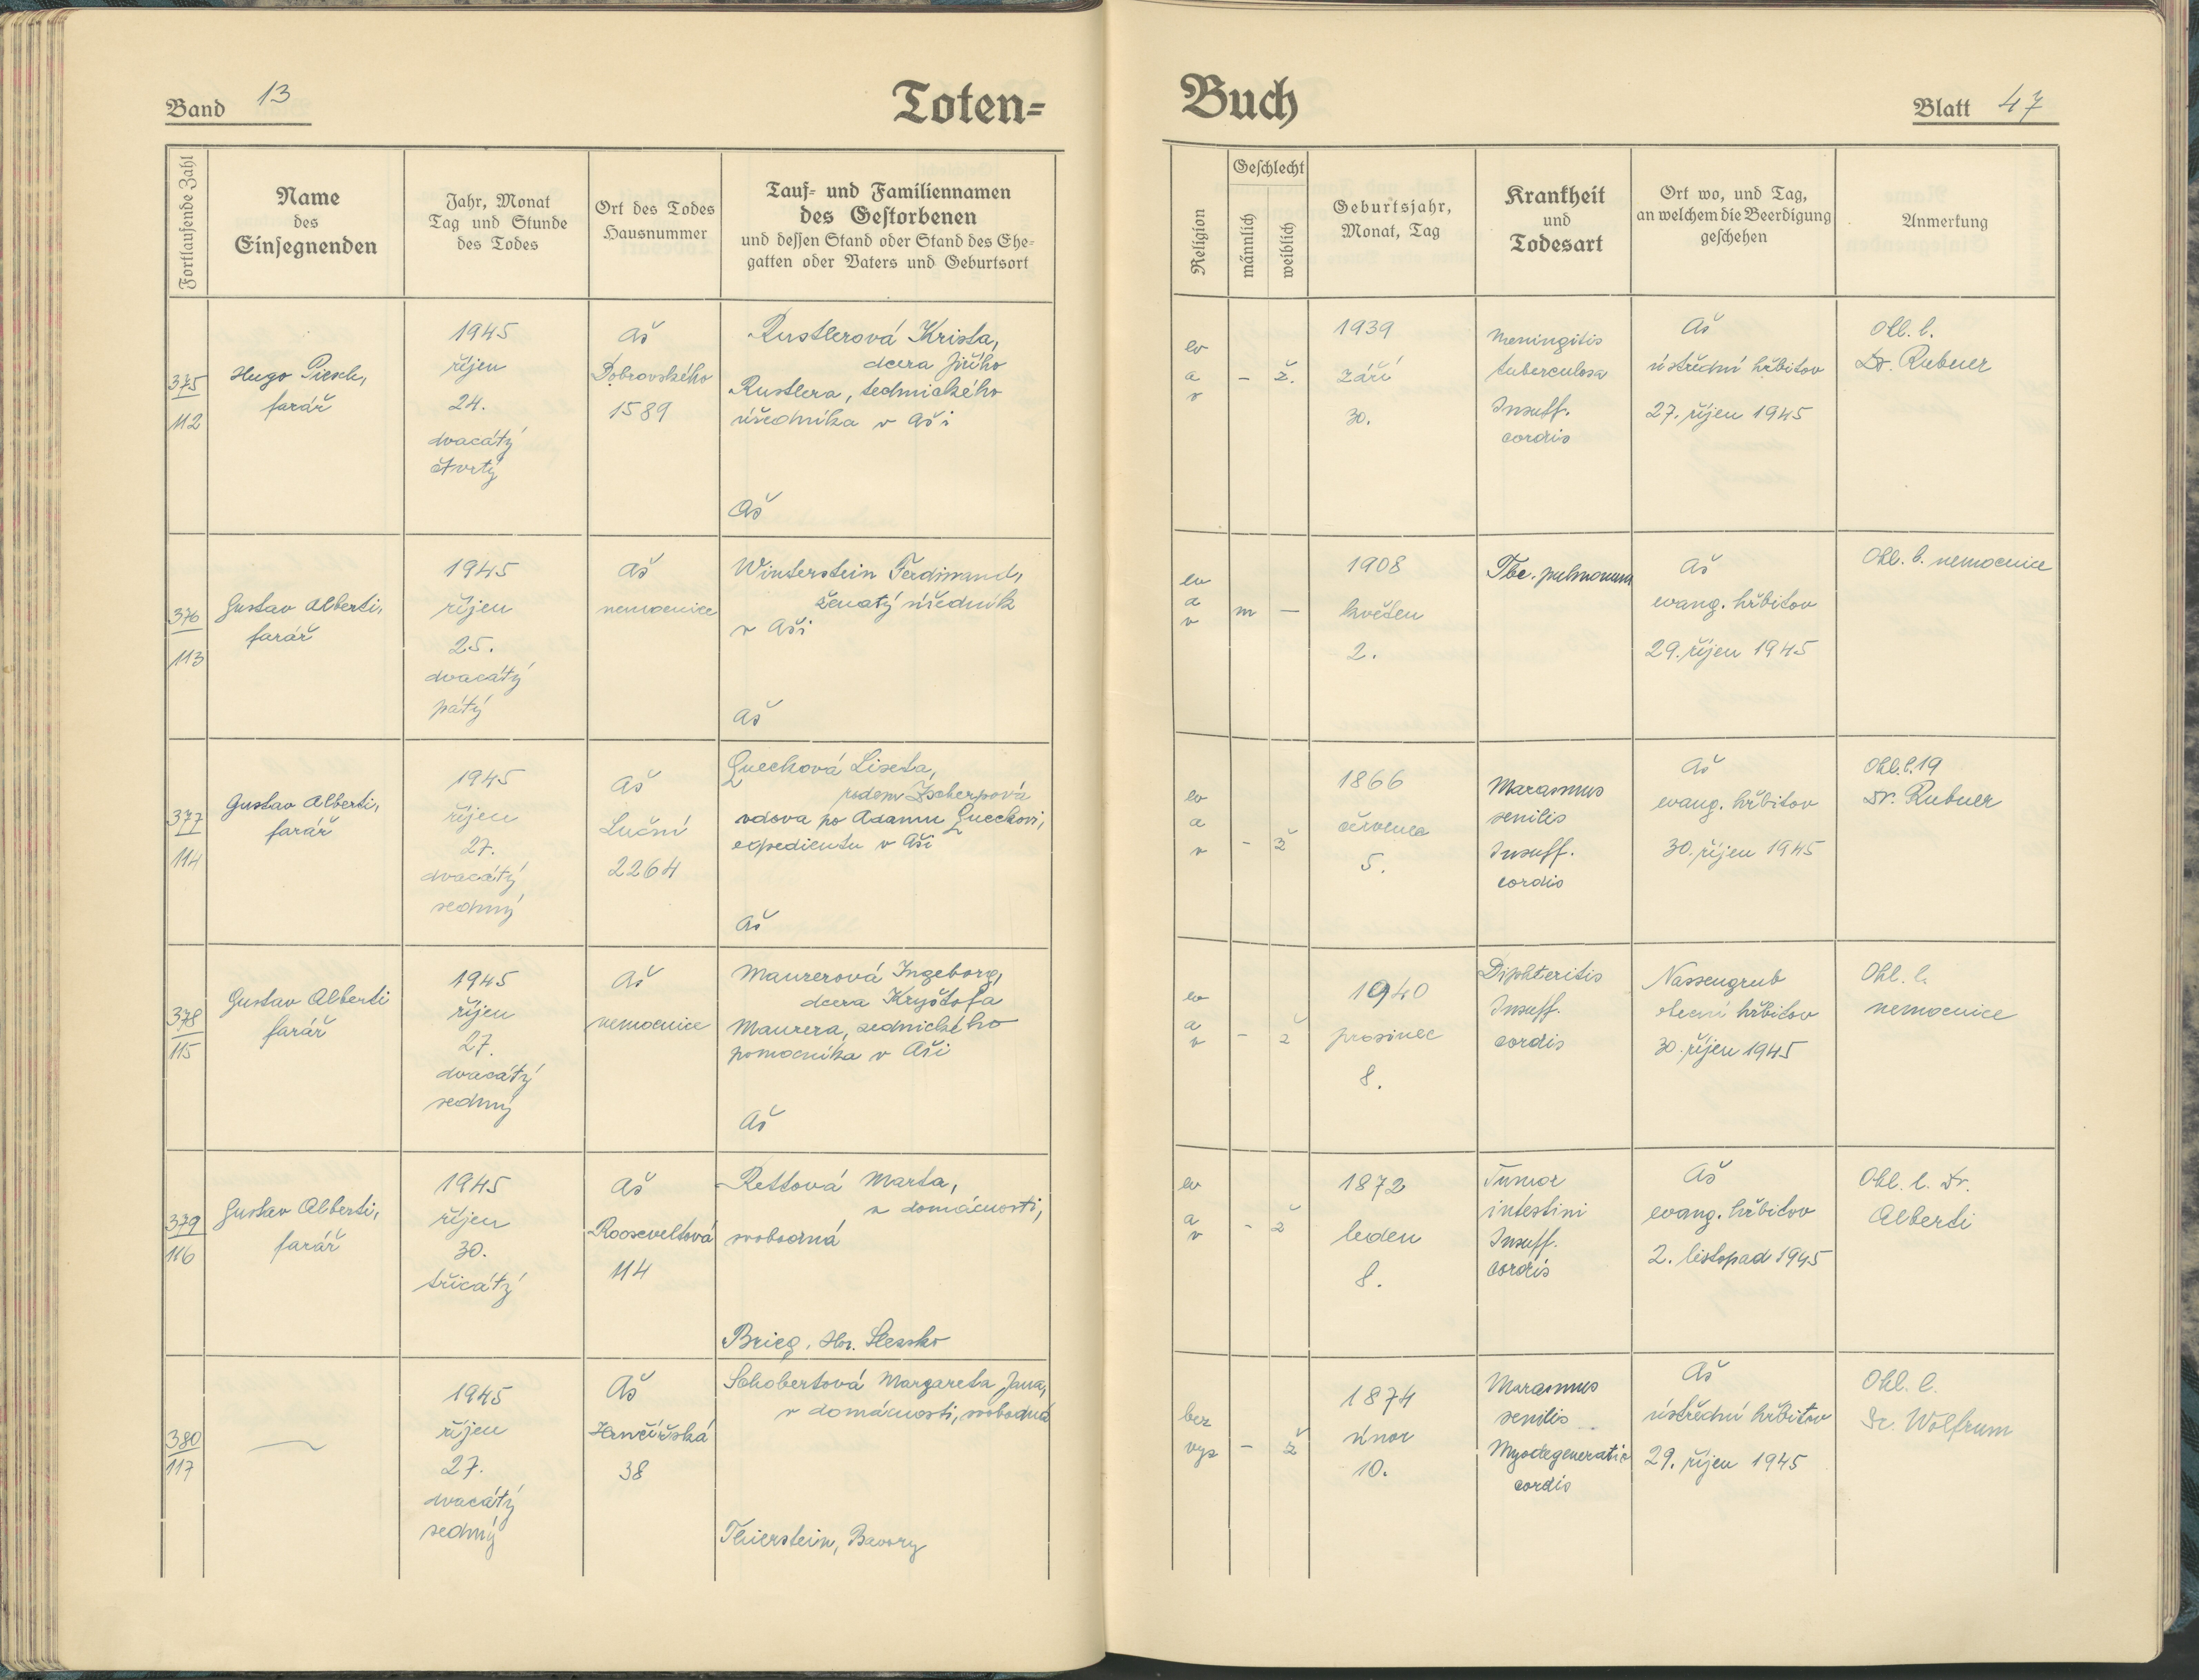 Band 13
Toten=
Buch
Blatt 47
Fortlaufende Zahl
Name
des
Einsegnenden
Jahr, Monat
Tag und Stunde
des Todes
Ort des Todes
Hausnummer
Tauf- und Familiennamen
des Gestorbenen
und dessen Stand oder Stand des Ehe-
gatten oder Vaters und Geburtsort
Religion
Geschlecht
männlich
weiblich
Geburtsjahr,
Monat, Tag
Krankheit
und
Todesart
Ort wo, und Tag,
an welchem die Beerdigung
geschehen
Anmerkung
375
112
Hugo Piesch,
farář
1945
říjen
24.
dvacátý
čtvrtý
Aš
Dobrovského
1589
Rustlerová Krista,
dcera Jiřího
Rustlera, technického
úředníka v Aši
Aš
ev
a
v
-
ž.
1939
září
30.
Meningitis
tuberculosa
Insuff.
cordis
Aš
ústřední hřbitov
27. říjen 1945
Ohl. l.
Dr. Rubner
376
113
Gustav Alberti,
farář
1945
říjen
25.
dvacátý
pátý
Aš
nemocnice
Winterstein Ferdinand,
ženatý úředník
v Aši
Aš
ev
a
v
m
-
1908
květen
2.
Tbc. pulmonum
Aš
evang. hřbitov
29. říjen 1945
Ohl. l. nemocnice
377
114
Gustav Alberti,
farář
1945
říjen
27.
dvacátý
sedmý
Aš
Luční
2264
Quecková Liseta,
rodem Zscherpová
vdova po Adamu Queckovi,
expedientu v Aši
Aš
ev
a
v
-
ž
1866
červenec
5.
Marasmus
senilis
Insuff.
cordis
Aš
evang. hřbitov
30. říjen 1945
Ohl. l. 19
Dr. Rubner
378
115
Gustav Alberti
farář
1945
říjen
27.
dvacátý
sedmý
Aš
nemocnice
Maurerová Ingeborg,
dcera Kryštofa
Maurera, zednického
pomocníka v Aši
Aš
ev
a
v
-
ž
1940
prosinec
8.
Diphteritis
Insuff.
cordis
Nassengrub
obecní hřbitov
30. říjen 1945
Ohl. l.
nemocnice
379
116
Gustav Alberti,
farář
1945
říjen
30.
třicátý
Aš
Rooseveltová
114
Rettová Marta,
v domácnosti,
svobodná
Brieg, Hor. Slezsko
ev
a
v
-
ž
1872
leden
8.
Tumor
intestini
Insuff.
cordis
Aš
evang. hřbitov
2. listopad 1945
Ohl. l. Dr.
Alberti
380
117
1945
říjen
27.
dvacátý
sedmý
Aš
Hrnčířská
38
Schobertová Margareta Jana,
v domácnosti, svobodná
Thierstein, Bavory
bez
vyz
-
ž
1874
únor
10.
Marasmus
senilis
Myodegeneratio
cordis
Aš
ústřední hřbitov
29. říjen 1945
Ohl. l.
Dr. Wolfrum